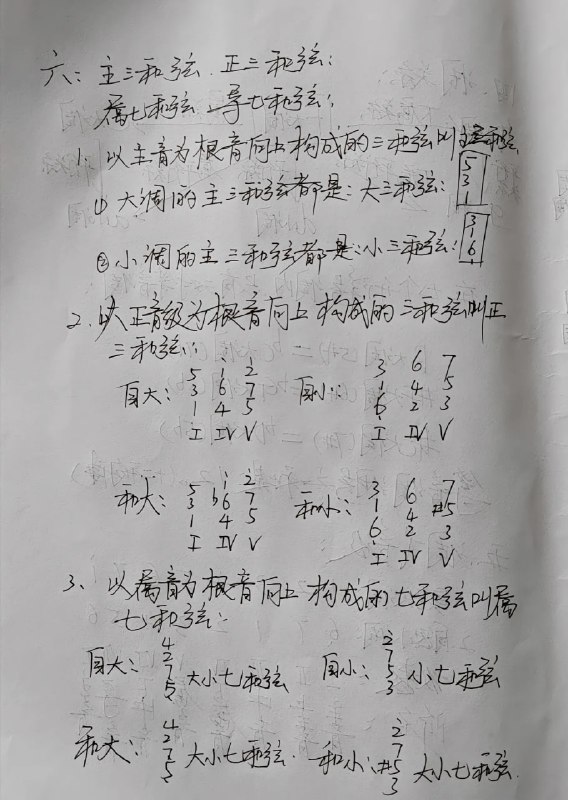 六：主三和弦．正三和弦：
属七和弦 导七和弦：
1、以主音为根音向上构成的三和弦叫主三和弦
① 大调的主三和弦都是：大三和弦：5 3 1
② 小调的主三和弦都是：小三和弦：3 1 6̣
2、以正音级为根音向上构成的三和弦叫正
三和弦：
自大： 5 i 2 自小： 3 6 7
3 6 7 1 4 5
1 4 5 6̣ 2 3
I IV V I IV V
和大： 5 i 2̇ 和小： 3 6 7
3 b6 7 1 4 #5
1 4 5 6̣ 2 3
I IV V I IV V
3、以属音为根音向上构成的七和弦叫属
七和弦：
自大： 4 2 7 5 大小七和弦 自小： 2 7 5 3 小七和弦
和大： 4 2 7 5 大小七和弦． 和小： 2 7 #5 3 大小七和弦．